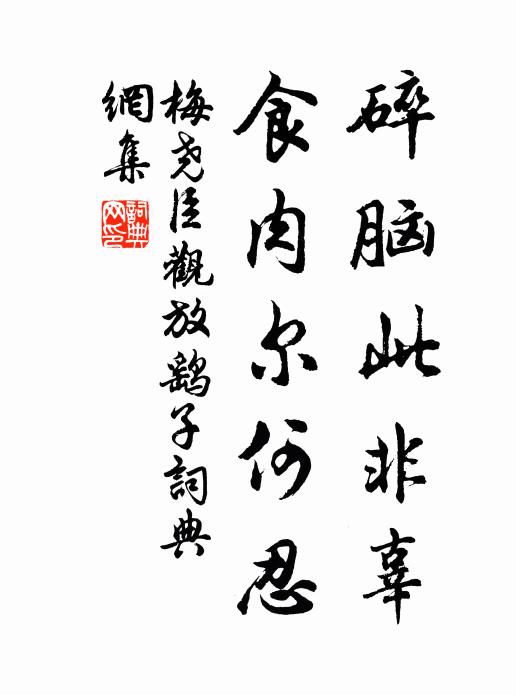 碎脑此非辜
食肉尔何忍
梅尧臣觀放鷂子詞典
網集
詞典
网印